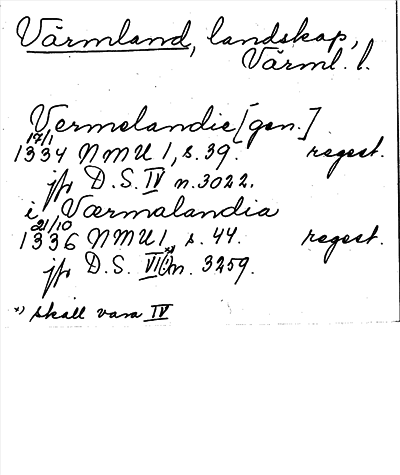 Värmland, landskap,
Värml. l.
Vermelandie [gen.]
17/1
1334 NMU 1, s. 39. regest.
jfr D.S. IV n. 3022.
i Værmalandia
21/10
1336 NMU 1, s. 44. regest.
jfr D.S. VI(!)*) n. 3259.
*) skall vara IV